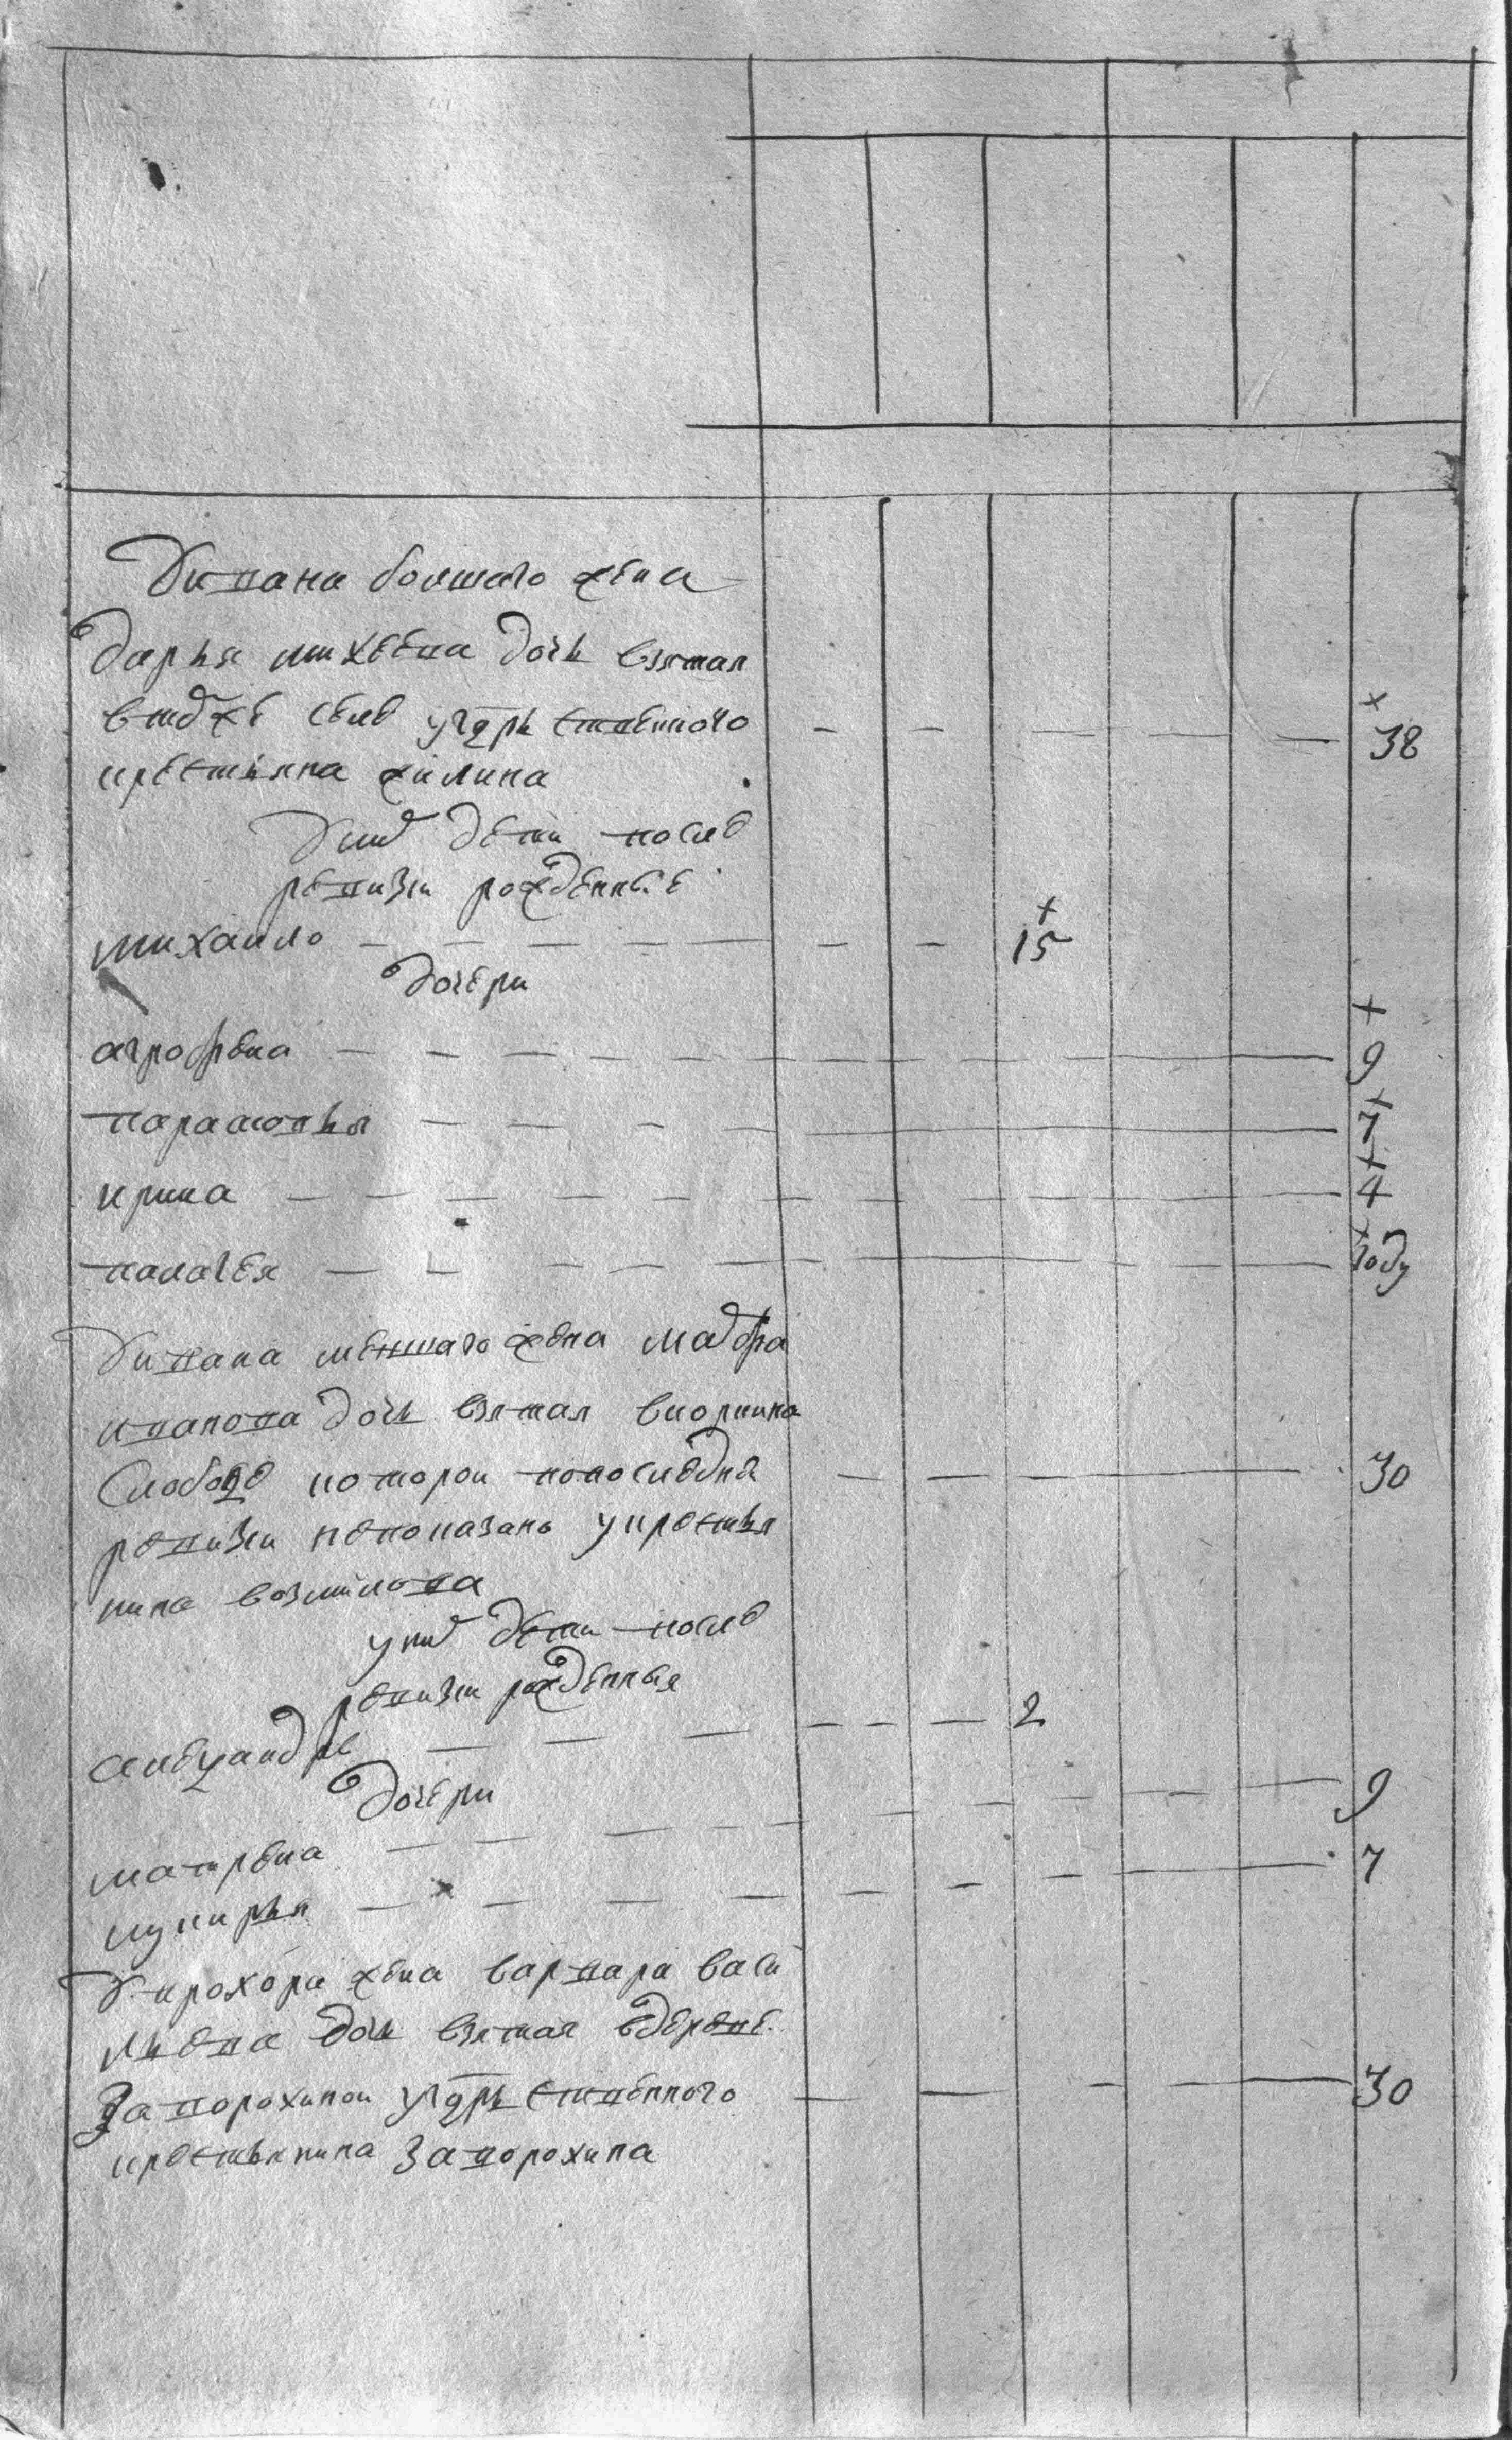 У ивана болшаго жена
дарья михеева дочь взятая
втомже селе у гдрьственного
крестьяна жилина 38
У них дети после
ревизи рожденные
михаило 15
дочери
агрофена 9
парасковья 7
ирина 4
палагея году
У ивана меншаго жена мавра
иванова дочь взятая
слободе которои попоследнеи
ревизи непоказано у крестья 30
нина
у них дети после
ревизи рожденныя
александръ 2
дочери
матрена 9
лукирья 7
У прохора жена варвара васи
льева дочь взятая вдеревне
Запорохинои у гдрьственного 30
крестьянина Запорохина